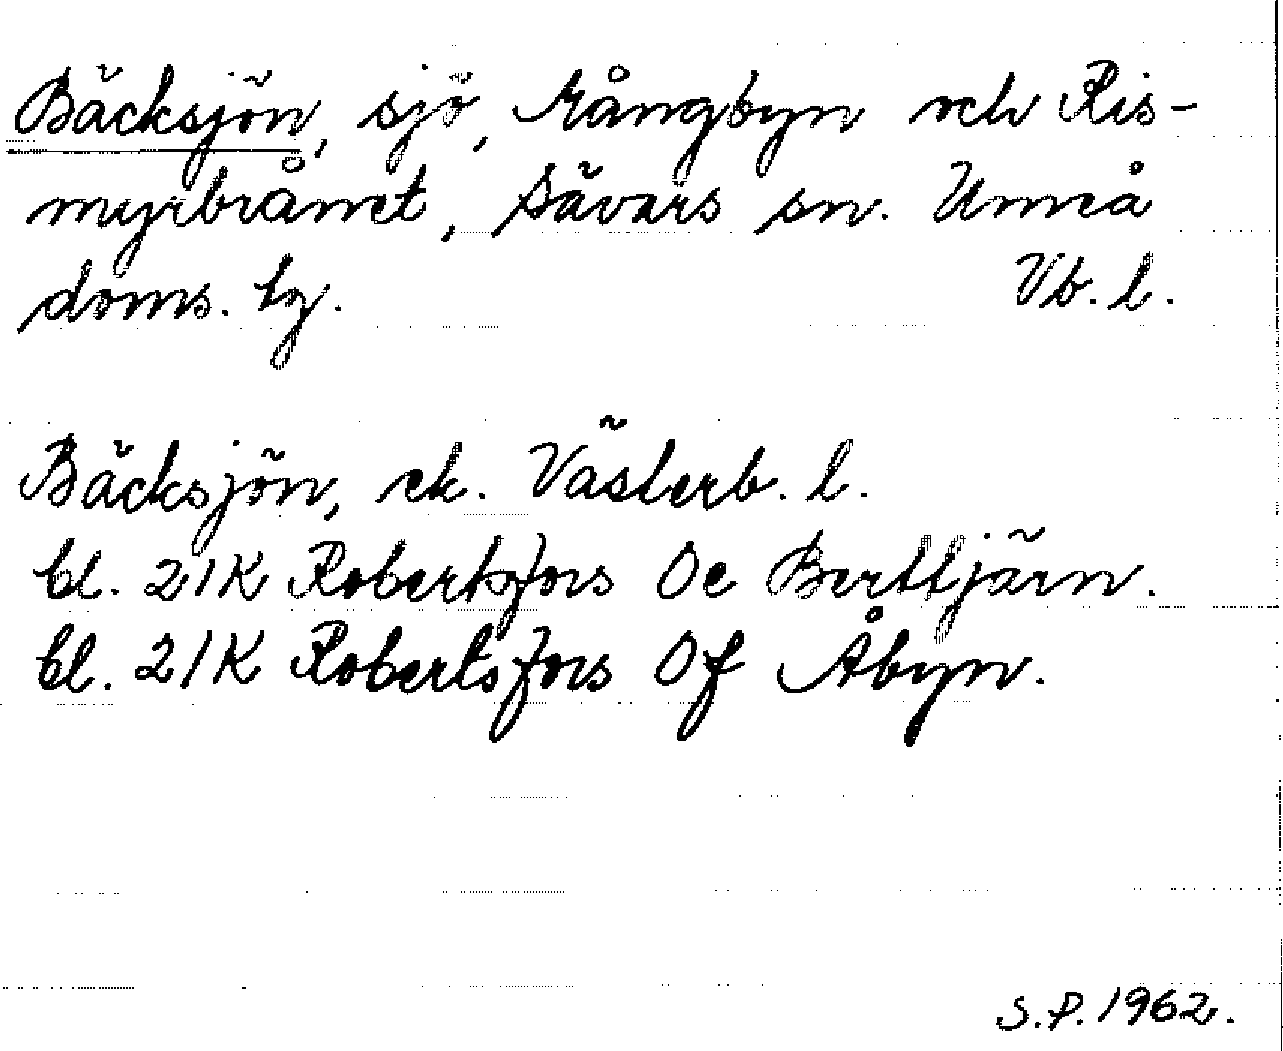 Bäcksjön, sjö, Mångbyn och Ris-
myrbrånet, Sävars sn. Umeå
doms. tg. Vb. l.
Bäcksjön, ek. Västerb. l.
bl. 21K Robertsfors Oe Berttjärn.
bl. 21K Robertsfors Of Åbyn.
S.P. 1962.